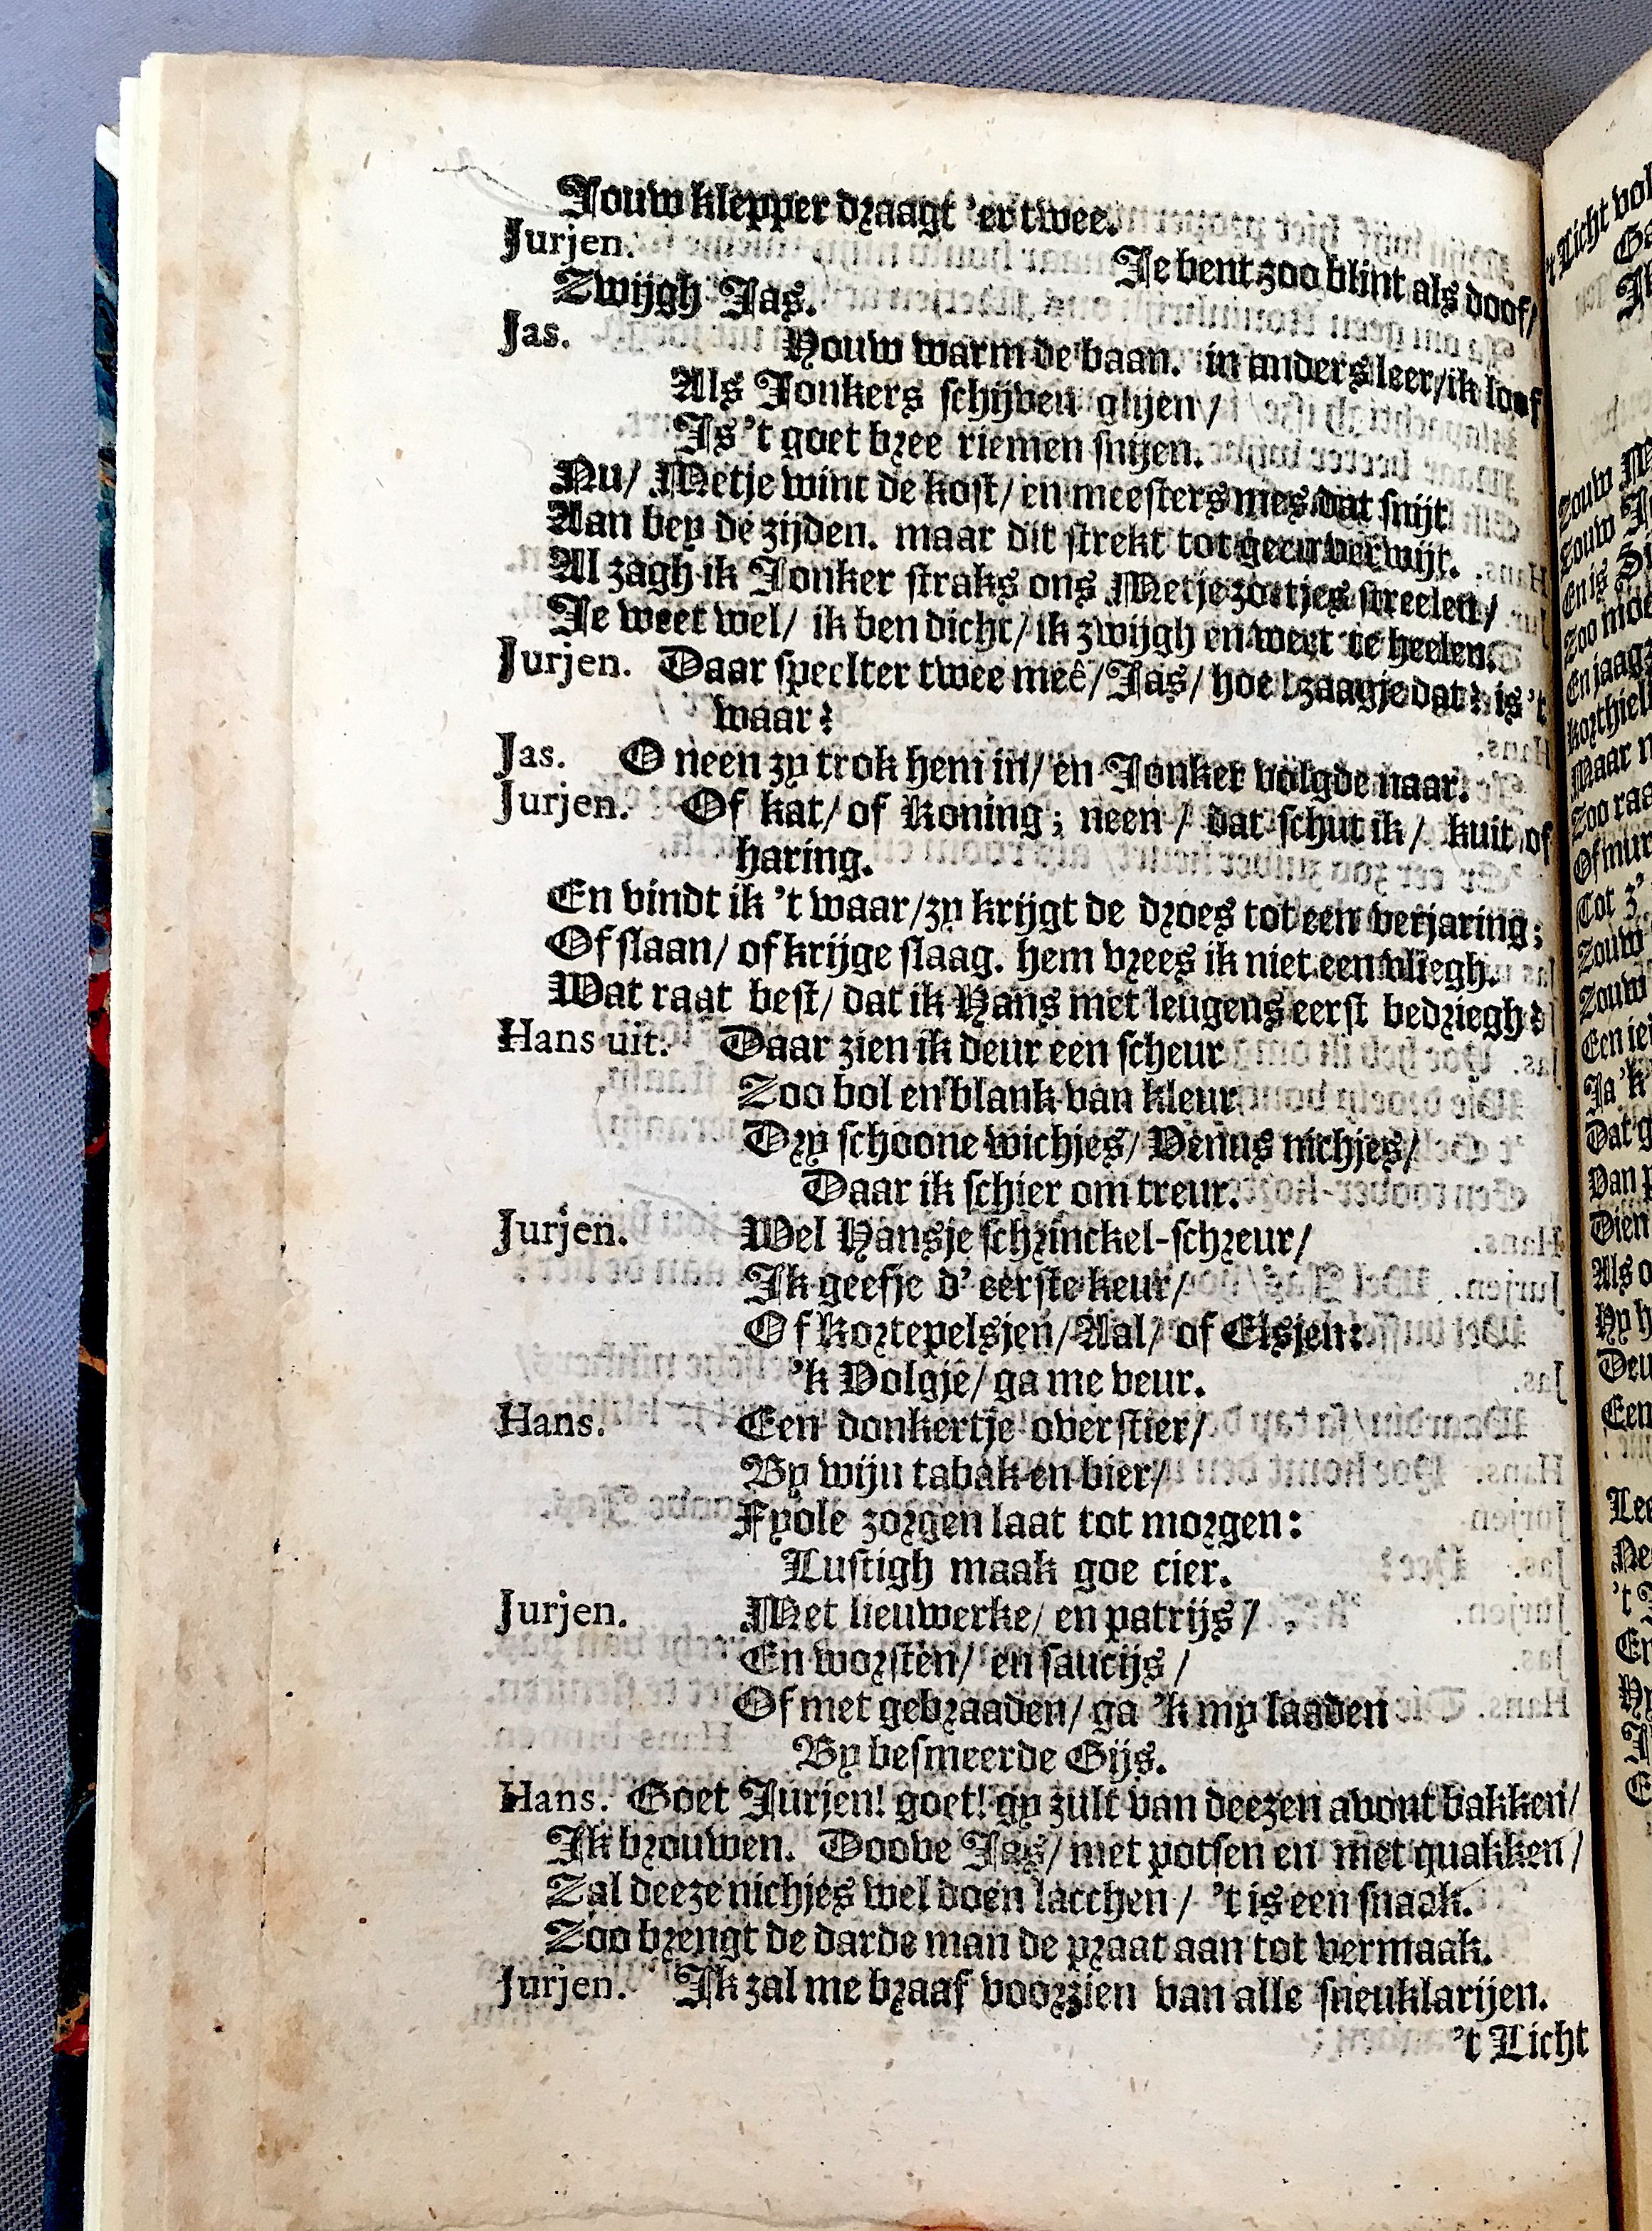 Jouw klepper draagt 'er twee.
Jurjen. Je bent zoo blint als doof/
Zwijgh Jas.
Jas. Houw warm de baan. in anders leer/ik loof
Als Jonkers schijven glijen/
Is 't goet bree riemen snijen.
Nu/ Metje wint de kost/ en meesters mes dat snijt
Aan bey de zijden. maar dit strekt tot geen verwijt.
Al zagh ik Jonker straks ons Metje zoetjes streelen/
Je weet wel/ ik ben dicht/ ik zwijgh en weet te heelen.
Jurjen. Daar speelter twee meê/Jas/ hoe! zaagje dat? is 't
waar?
Jas. O neen zy trok hem in/ en Jonker volgde naar.
Jurjen. Of kat/ of Koning; neen/ dat schut ik/ kuit of
haring.
En vindt ik 't waar/zy krijgt de droes tot een verjaring;
Of slaan/ of krijge slaag. hem vrees ik niet een vliegh.
Wat raat best/ dat ik Hans met leugens eerst bedriegh?
Hans uit. Daar zien ik deur een scheur
Zoo bol en blank van kleur
Dry schoone wichjes/ Venus nichjes/
Daar ik schier om treur.
Jurjen. Wel Hansje schrinckel-schreur/
Ik geefje d' eerste keur/
Of Kortepelsjen/Aal/ of Elsjen:
'k Volgjê/ ga me veur.
Hans. Een donkertje overstier/
By wijn tabak en bier/
Fyole zorgen laat tot morgen:
Lustigh maak goe cier.
Jurjen. Met lieuwerke/ en patrijs/
En worsten/ en saucijs/
Of met gebraaden/ ga 'k my laaden
By besmeerde Gijs.
Hans. Goet Jurjen! goet! gy zult van deezen avont bakken/
Ik brouwen. Doove Jas/ met potsen en met quakken/
Zal deeze nichjes wel doen lacchen/ 't is een snaak.
Zoo brengt de darde man de praat aan tot vermaak.
Jurjen. Ik zal me braaf voorzien van alle sneuklarijen.
't Licht